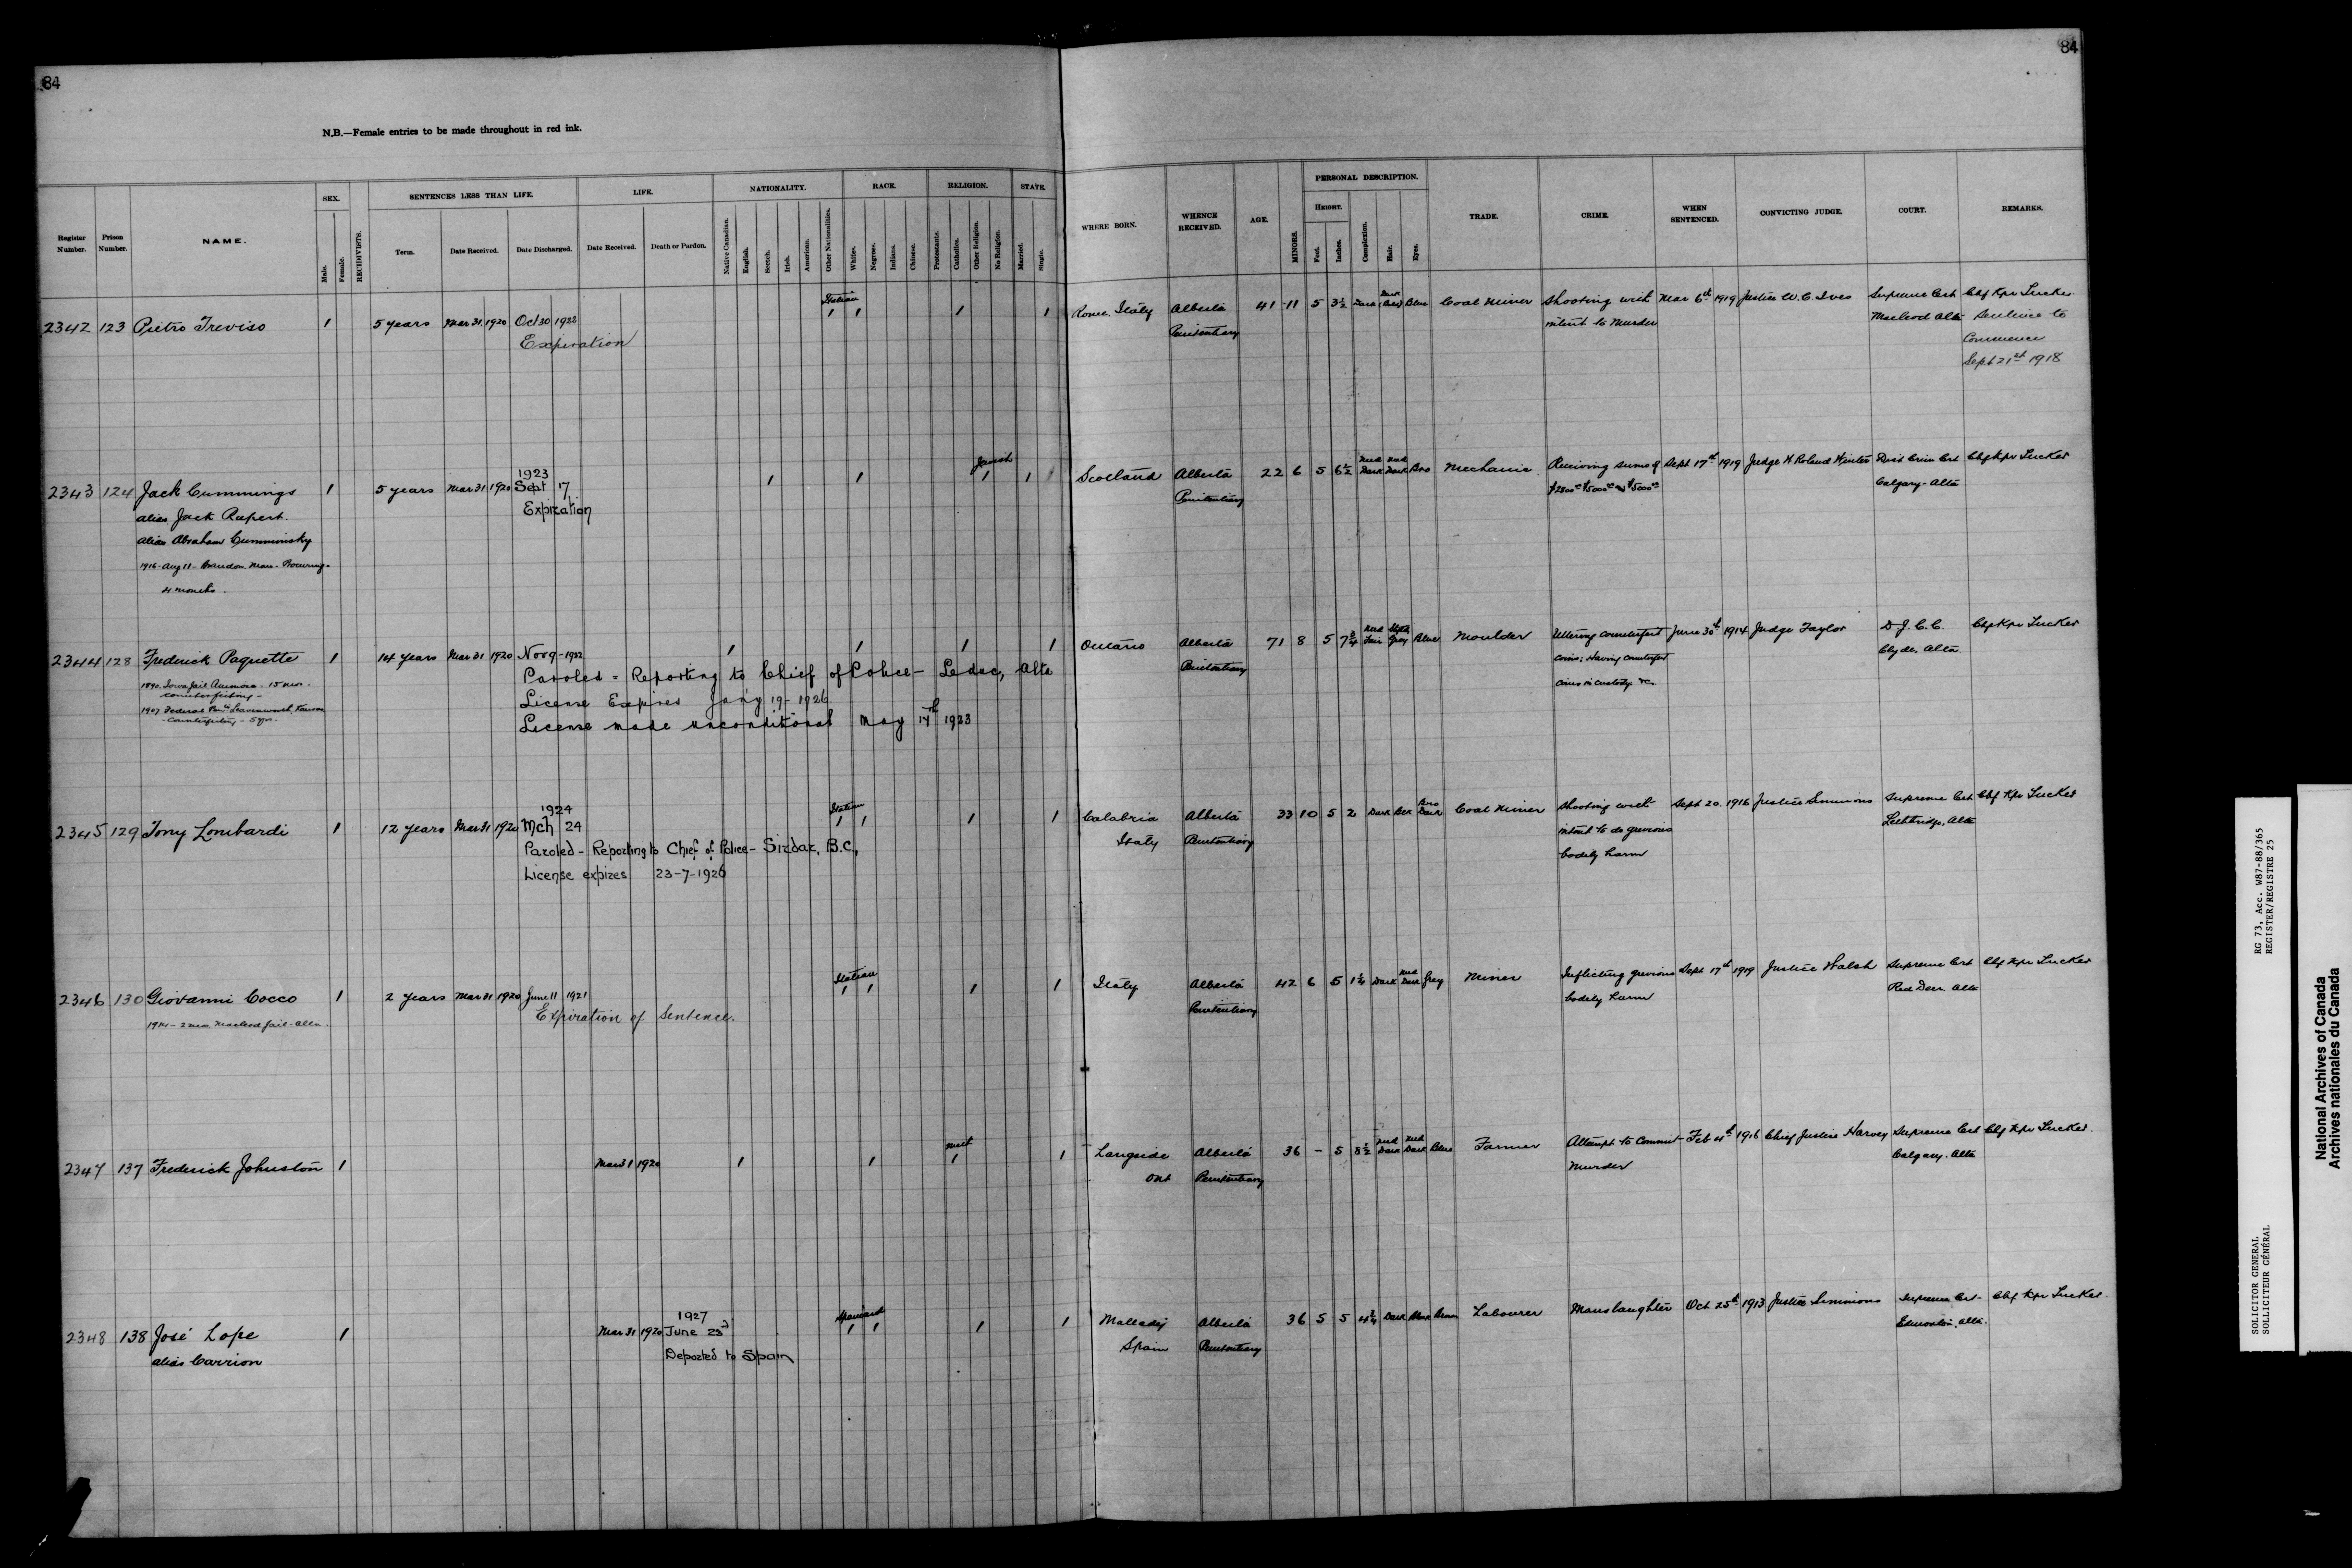 84
84
N.B.—Female entries to be made throughout in red ink.
Register Number.
Prison Number.
NAME.
SEX.
Male.
Female.
RECIDIVISTS.
SENTENCES LESS THAN LIFE.
Term.
Date Received.
Date Discharged.
LIFE.
Date Received.
Death or Pardon.
NATIONALITY.
Native Canadian.
English.
Scotch.
Irish.
American.
Other Nationalities.
RACE.
White.
Negroes.
Indians.
Chinese.
RELIGION.
Protestants.
Catholics.
Other Religion.
No Religion.
STATE.
Married.
Single.
WHERE BORN.
WHENCE RECEIVED.
AGE.
MINORS.
PERSONAL DESCRIPTION.
HEIGHT.
Feet.
Inches.
Complexion.
Hair.
Eyes.
TRADE.
CRIME.
WHEN SENTENCED.
CONVICTING JUDGE.
COURT.
REMARKS.
2342 123 Pietro Treviso 1 5 years Mar 31 1920 Oct 30 1922 Italian 1 1 1 1 Rome, Italy Alberta 41 11 5 3½ Dark Dark Blue Coal Miner Shooting with Mar 6th 1919 Justice W. C. Ives Supreme Crt Chf Kpr Tucker
Expiration Penitentiary intent to Murder Macleod Alta Sentence to
Commence
Sept 21st 1918
1923 Jewish
2343 124 Jack Cummings 1 5 years Mar 31 1920 Sept 17 1 1 1 1 Scotland Alberta 22 6 5 6½ Med Dark Med Dark Bro Mechanic Receiving sums of Sept 17th 1919 Judge W Roland Winter Dist Crim Crt Chf Kpr Tucker
Expiration Penitentiary $2800.00 $5000.00 $5000.00 Calgary - Alta
alias Jack Rupert
alias Abraham Cumminsky
1916 - Aug 11 - Brandon, Man - Procuring -
4 months.
2344 128 Frederick Paquette 1 14 years Mar 31 1920 Nov 9 - 1922 1 1 1 1 Ontario Alberta 71 8 5 7¾ Med Fair Grey Blue Moulder Uttering counterfeit June 30th 1914 Judge Taylor D. J. C. C. Chf Kpr Tucker
Paroled - Reporting to Chief of Police - Leduc, Alta Penitentiary coins; Having counterfeit Clyde, Alta
1890 Iowa Jail Anamosa - 15 mos - counterfeiting -
License Expires Jan'y 19 - 1926. coins in custody &c
1907 Federal Pen. Leavenworth, Kansas - Counterfeiting - 5 yrs.
License made unconditional May 17th 1923
1924 Italian
2345 129 Tony Lombardi 1 12 years Mar 31 1920 Mch 24 1 1 1 1 Calabria Alberta 33 10 5 2 Dark Blk Bro Dark Coal Miner Shooting with Sept 20. 1916 Justice Simmons Supreme Crt Chf Kpr Tucker
Paroled - Reporting to Chief of Police - Sirdar, B.C, Italy Penitentiary intent to do grevious Lethbridge, Alta
License expires 23-7-1926 bodily harm
Italian
2346 130 Giovanni Cocco 1 2 years Mar 31 1920 June 11 1921 1 1 1 1 Italy Alberta 42 6 5 1¼ Dark Med Dark Grey Miner Inflicting grevious Sept 17th 1919 Justice Walsh Supreme Crt Chf Kpr Tucker
1914 - 2 mos Macleod Jail - Alta. Expiration of Sentence. Penitentiary bodily harm Red Deer Alta
Meth
2347 137 Frederick Johnston 1 Mar 31 1920 1 1 1 1 Langside Alberta 36 - 5 8½ Med Dark Med Dark Blue Farmer Attempt to Commit Feb 4th 1916 Chief Justice Harvey Supreme Crt Chf Kpr Tucker.
Ont Penitentiary Murder Calgary. Alta
1927 Spaniard
2348 138 José Lope 1 Mar 31 1920 June 23d 1 1 1 1 Alberta 36 5 5 4¾ Dark Black Brown Labourer Manslaughter Oct 25th 1913 Justice Simmons Supreme Crt - Chf Kpr Tucker.
alias Carrion Deported to Spain Spain Penitentiary Edmonton, Alta.
RG 73, Acc. W87-88/365
REGISTER/REGISTRE 25
SOLICITOR GENERAL
SOLLICITEUR GÉNÉRAL
National Archives of Canada
Archives nationales du Canada